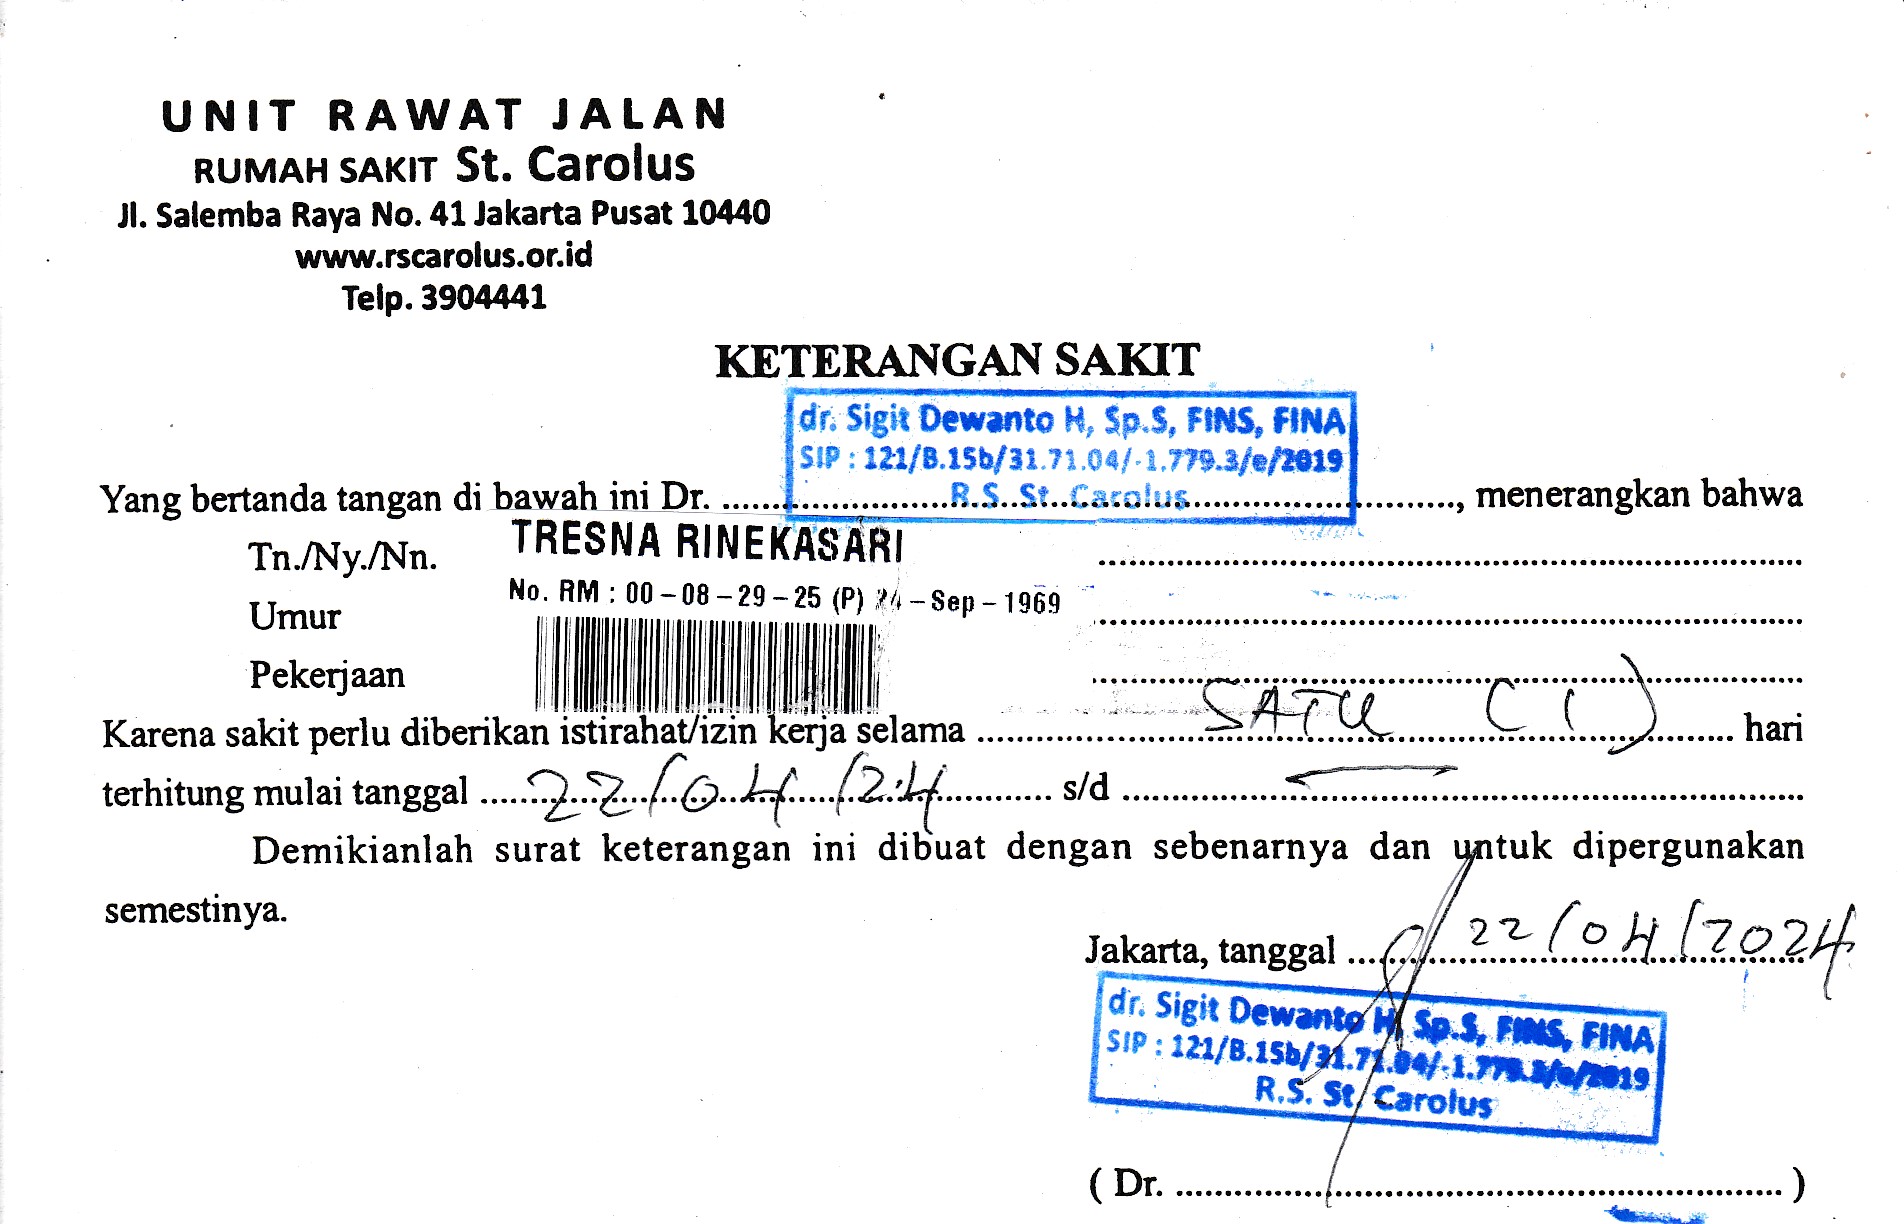 UNIT RAWAT JALAN
RUMAH SAKIT St. Carolus
Jl. Salemba Raya No. 41 Jakarta Pusat 10440
www.rscarolus.or.id
Telp. 3904441
KETERANGAN SAKIT
dr. Sigit Dewanto H, Sp.S, FINS, FINA
SIP : 121/B.15b/31.71.04/-1.779.3/e/2019
R.S. St. Carolus
Yang bertanda tangan di bawah ini Dr. ...................., menerangkan bahwa
Tn./Ny./Nn. TRESNA RINEKASARI
No. RM : 00-08-29-25 (P) 24-Sep-1969
Umur
Pekerjaan
Karena sakit perlu diberikan istirahat/izin kerja selama SATU (1) hari
terhitung mulai tanggal 22/04/24 s/d
Demikianlah surat keterangan ini dibuat dengan sebenarnya dan untuk dipergunakan
semestinya.
Jakarta, tanggal 22/04/2024
dr. Sigit Dewanto H, Sp.S, FINS, FINA
SIP : 121/B.15b/31.71.04/-1.779.3/e/2019
R.S. St. Carolus
( Dr. .................... )